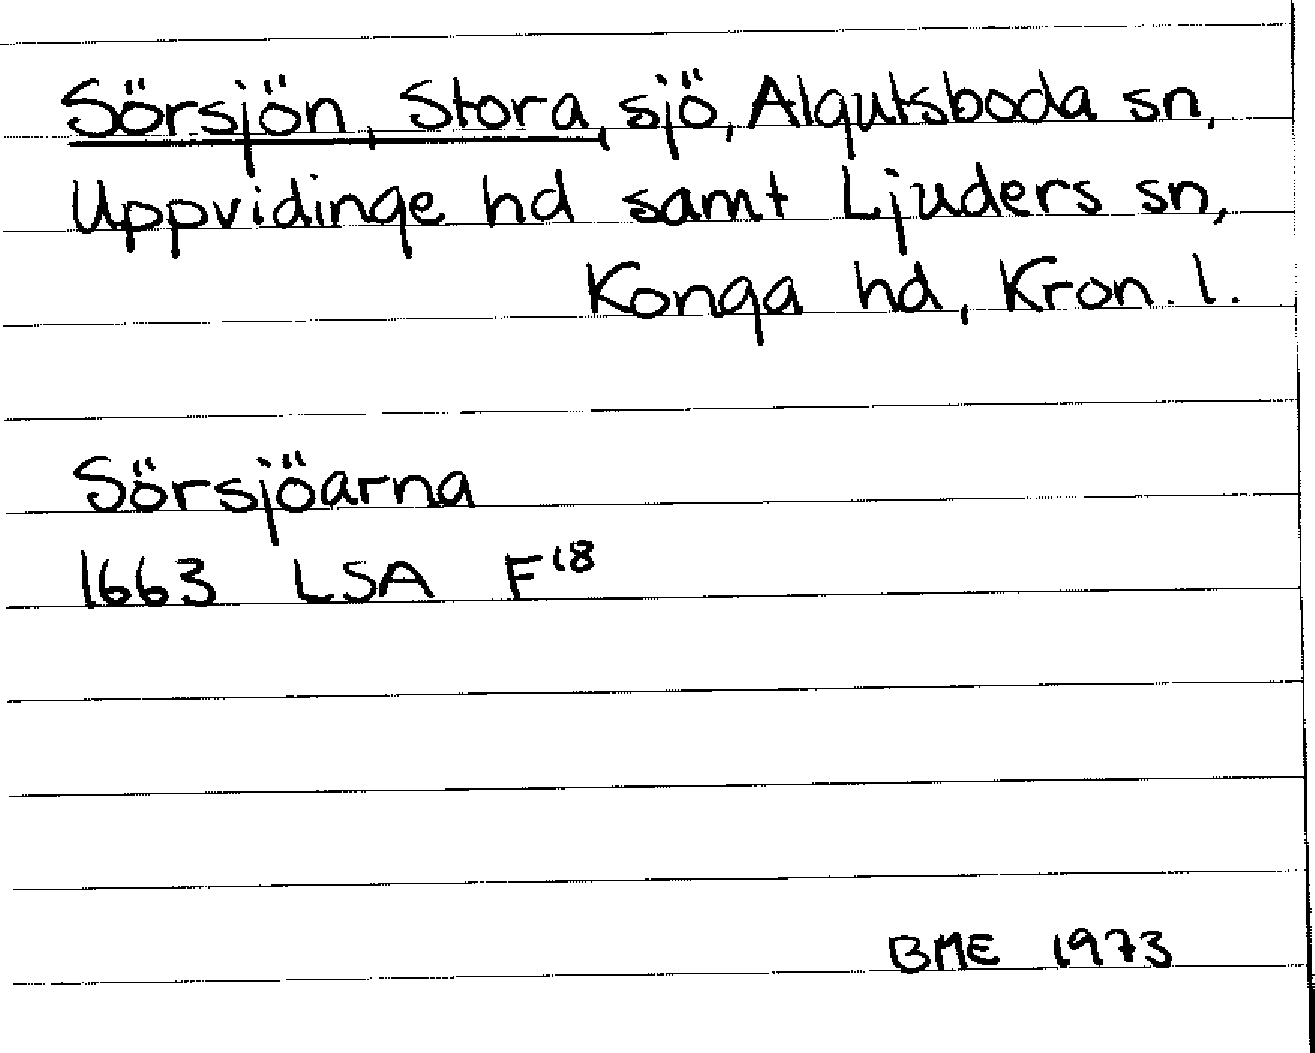 Sörsjön, Stora, sjö, Algutsboda sn,
Uppvidinge hd samt Ljuders sn,
Konga hd, Kron. l.
Sörsjöarna
1663 LSA F¹⁸
BME 1973